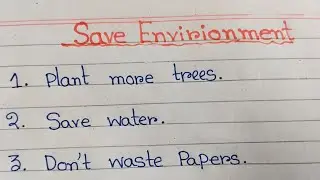 Save Envirionment
1. Plant more trees.
2. Save water.
3. Don't waste Papers.